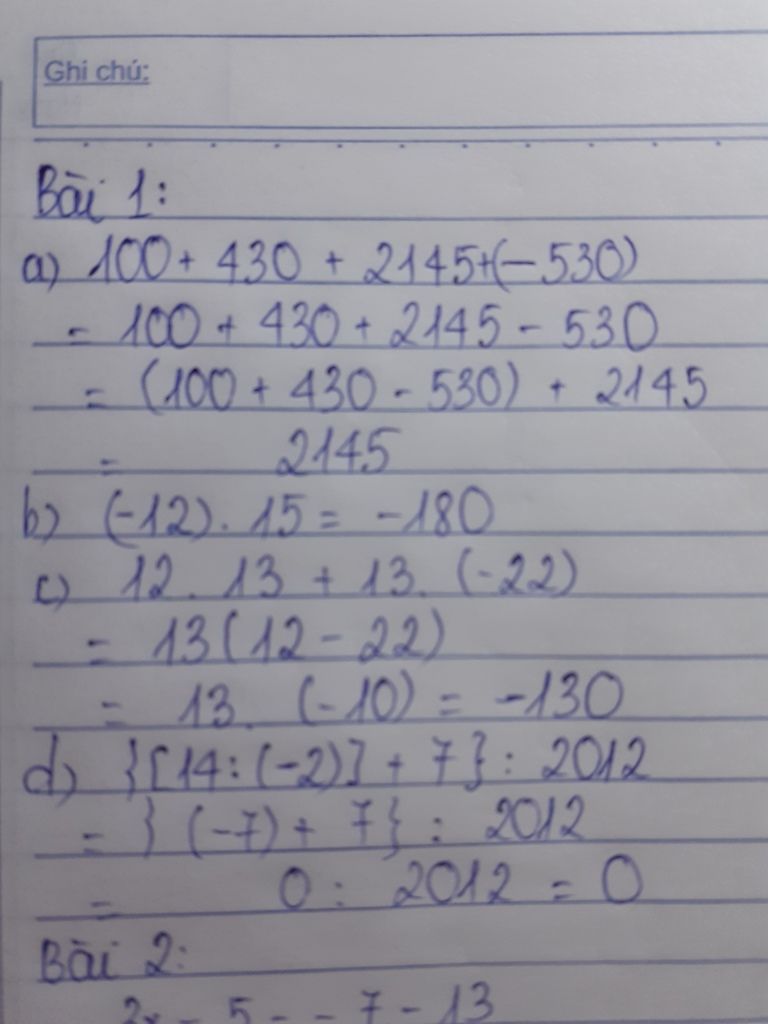 Ghi chú:
Bài 1:
a) 100 + 430 + 2145 + (-530)
= 100 + 430 + 2145 - 530
= (100 + 430 - 530) + 2145
= 2145
b) (-12) . 15 = -180
c) 12 . 13 + 13 . (-22)
= 13 (12 - 22)
= 13 . (-10) = -130
d) {[14 : (-2)] + 7} : 2012
= { (-7) + 7} : 2012
= 0 : 2012 = 0
Bài 2:
2x - 5 = - 7 - 13